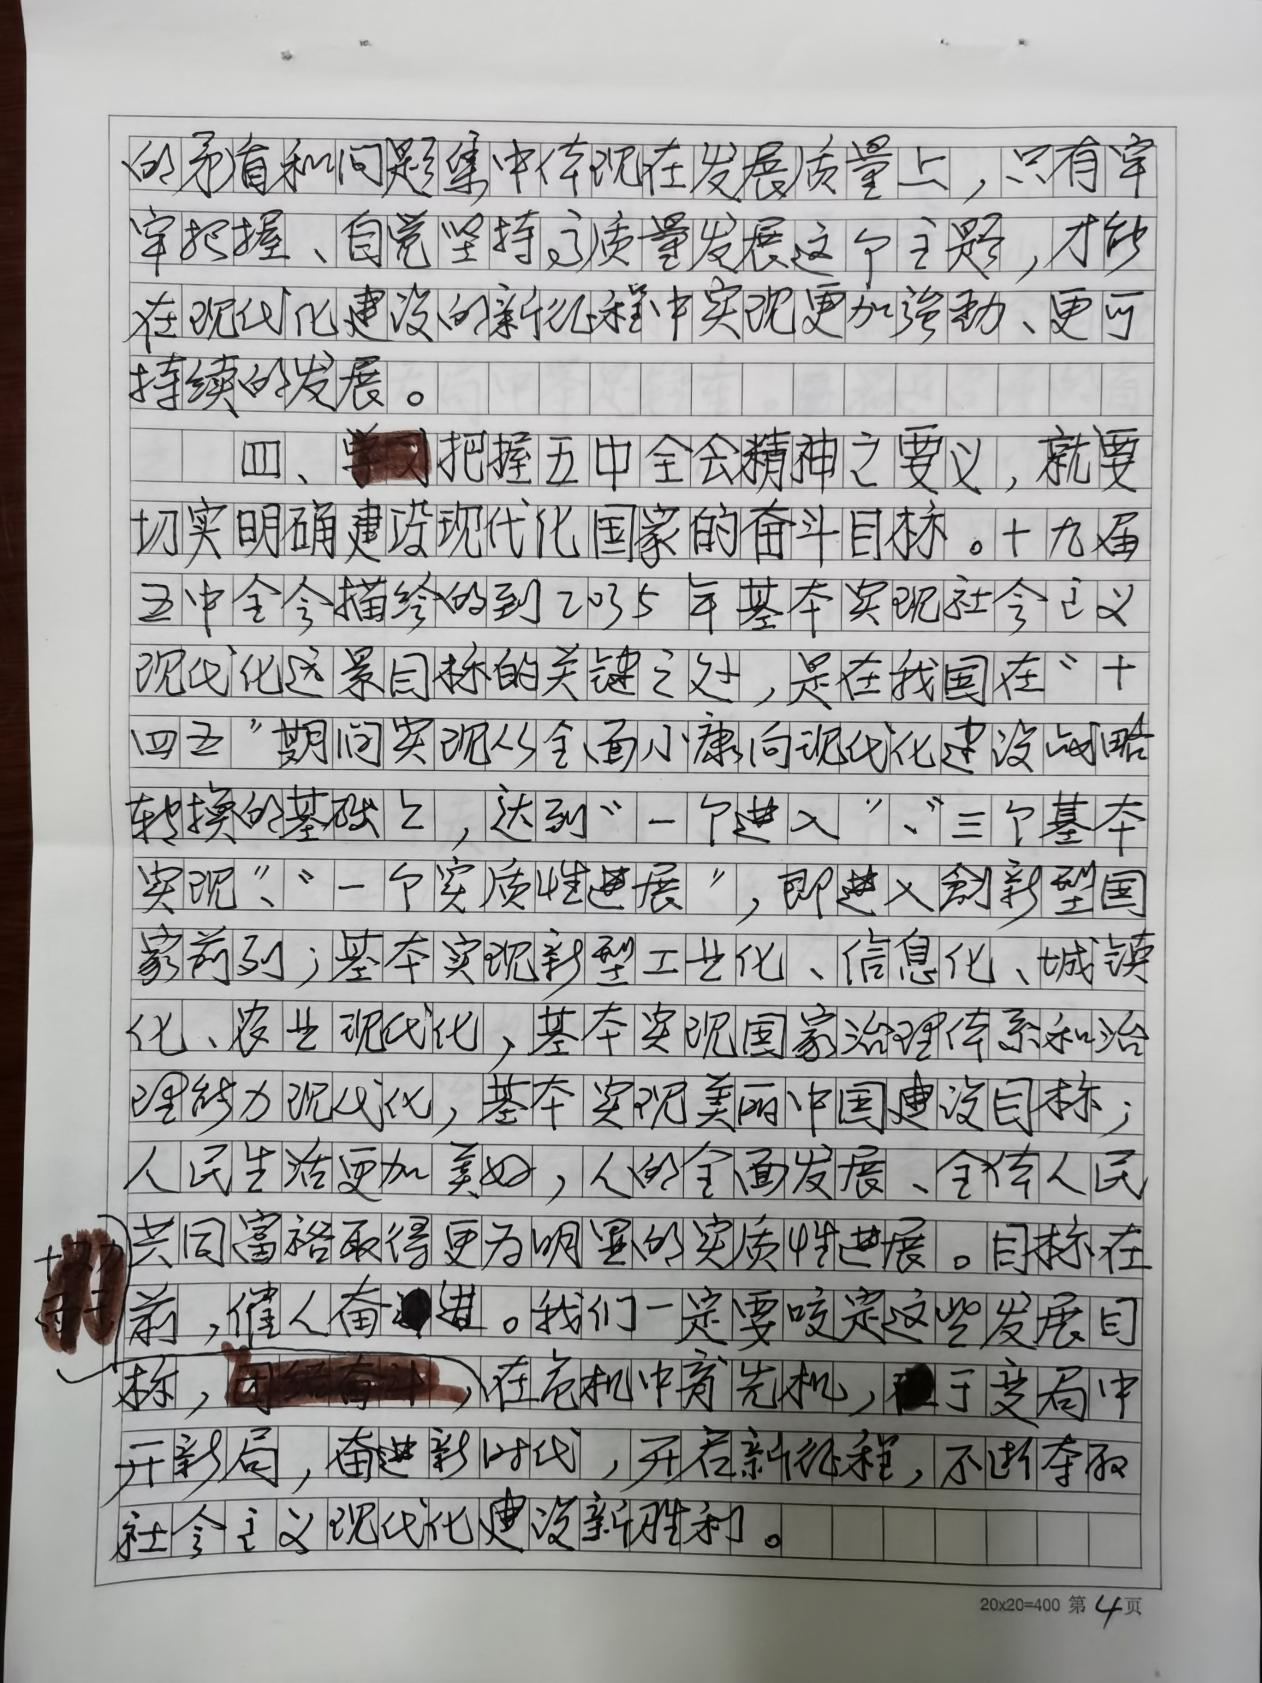 的矛盾和问题集中体现在发展质量上，只有牢
牢把握、自觉坚持高质量发展这个主题，才能
在现代化建设的新征程中实现更加强劲、更可
持续的发展。
四、把握五中全会精神之要义，就要
切实明确建设现代化国家的奋斗目标。十九届
五中全会描绘的到2035年基本实现社会主义
现代化远景目标的关键之处，是在我国在“十
四五”期间实现从全面小康向现代化建设战略
转换的基础上，达到“一个进入”、“三个基本
实现”、“一个实质性进展”，即进入创新型国
家前列；基本实现新型工业化、信息化、城镇
化、农业现代化，基本实现国家治理体系和治
理能力现代化，基本实现美丽中国建设目标；
人民生活更加美好，人的全面发展、全体人民
共同富裕取得更为明显的实质性进展。目标在
前，催人奋进。我们一定要咬定这些发展目
标，在危机中育先机，于变局中
开新局，奋进新时代，开启新征程，不断夺取
社会主义现代化建设新胜利。
20x20=400 第4页